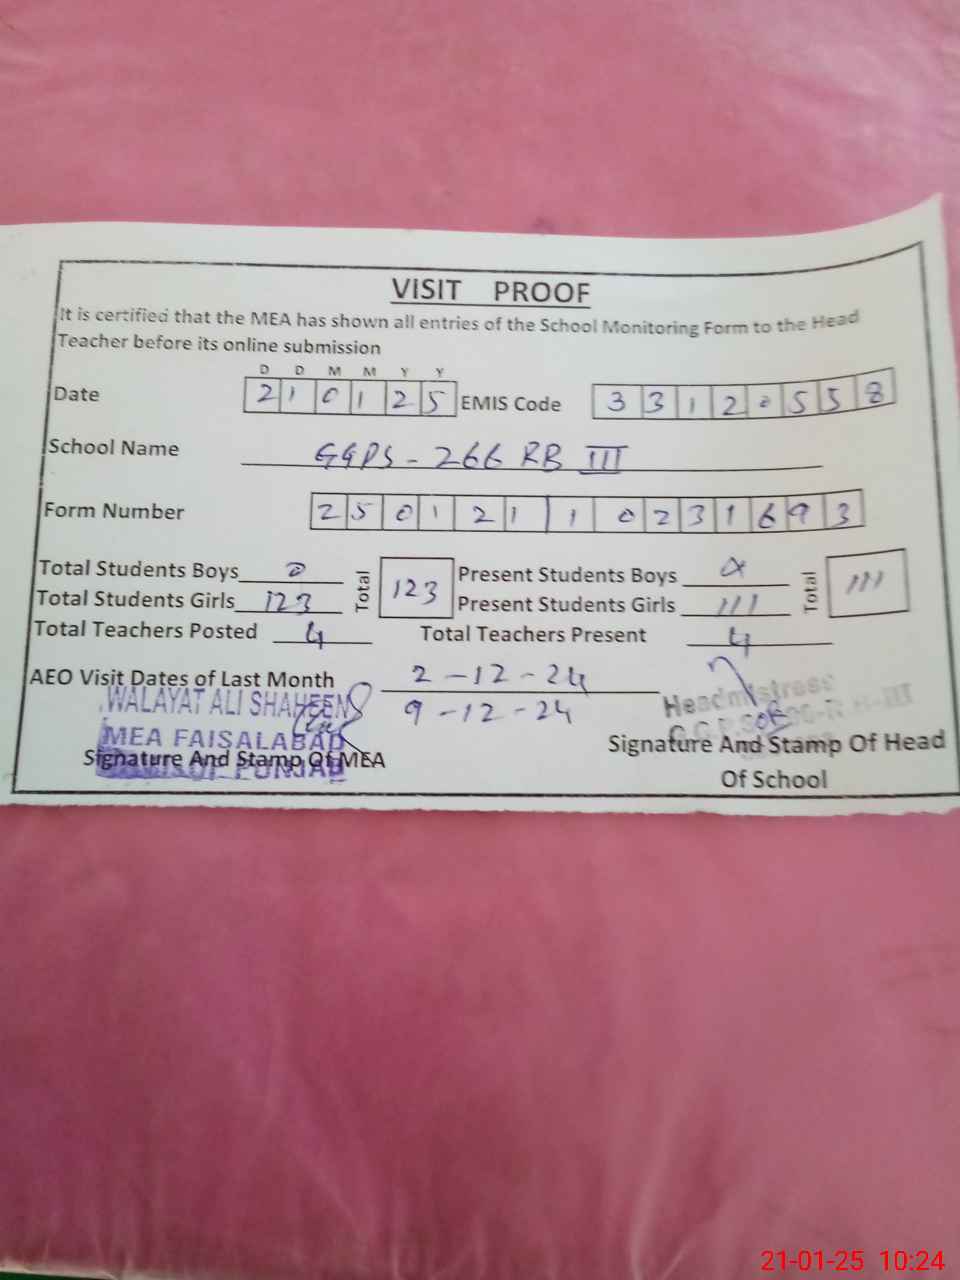 VISIT PROOF
It is certified that the MEA has shown all entries of the School Monitoring Form to the Head
Teacher before its online submission
D D M M Y Y
Date 2 1 0 1 2 5 EMIS Code 3 3 1 2 0 5 5 8
School Name GGPS - 266 RB III
Form Number 2 5 0 1 2 1 1 0 2 3 1 6 9 3
Total Students Boys 0 Total 123 Present Students Boys Total 111
Total Students Girls 123 Present Students Girls 111
Total Teachers Posted 4 Total Teachers Present 4
AEO Visit Dates of Last Month 2-12-24
9-12-24
WALAYAT ALI SHAHEEN
MEA FAISALABAD
Headmistress
Signature And Stamp Of MEA
Signature And Stamp Of Head
Of School
21-01-25 10:24